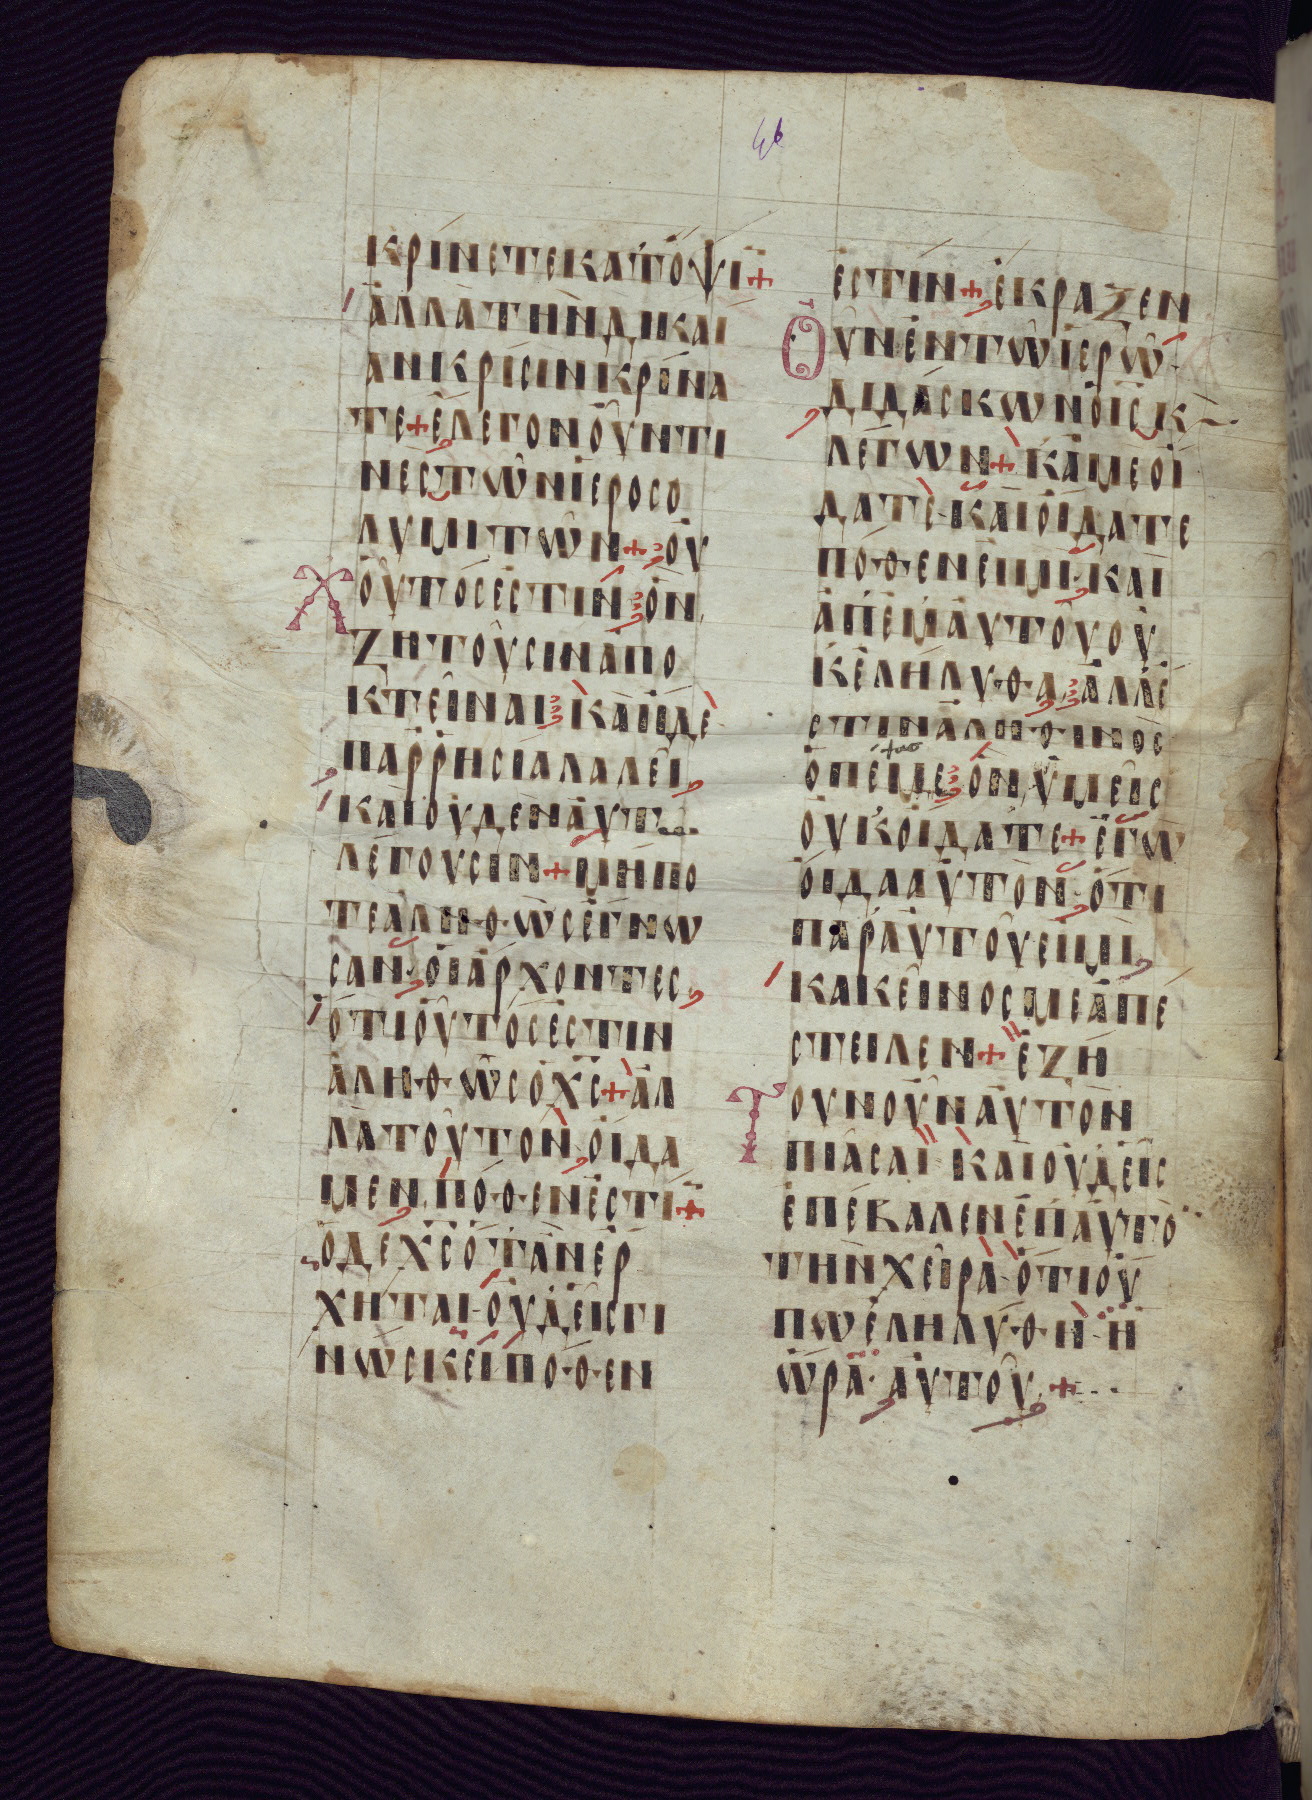 46
ΚΡΙΝΕΤΕΚΑΤΟΨΙ+
ΑΛΛΑΤΗΝΔΗΚΑΙ
ΑΝΚΡΙCΙΝΚΡΙΝΑ
ΤΕ+ΕΛΕΓΟΝΟΥΝΤΙ
ΝΕCΤΩΝΙΕΡΟCΟ
ΛΥΜΙΤΩΝ+ΟΥ
ΧΟΥΤΟCΕCΤΙΝΟΝ
ΖΗΤΟΥCΙΝΑΠΟ
ΚΤΕΙΝΑΙΚΑΙΙΔΕ
ΠΑΡΡΗCΙΑΛΑΛΕΙ
ΚΑΙΟΥΔΕΝΑΥΤ
ΛΕΓΟΥCΙΝ+ΜΗΠΟ
ΤΕΑΛΗΘΩCΕΓΝΩ
CΑΝ·ΟΙΑΡΧΟΝΤΕC
ΟΤΙΟΥΤΟCΕCΤΙΝ
ΑΛΗΘΩCΟΧC+ΑΛ
ΛΑΤΟΥΤΟΝ·ΟΙΔΑ
ΜΕΝ·ΠΟΘΕΝΕCΤΙ+
ΟΔΕΧCΟΤΑΝΕΡ
ΧΗΤΑΙ·ΟΥΔΕΙCΓΙ
ΝΩCΚΕΙΠΟΘΕΝ
ΕCΤΙΝ+ΕΚΡΑΖΕΝ
ΟΥΝΕΝΤΩΙΕΡΩ·
ΔΙΔΑCΚΩΝΟΙCΚ
ΛΕΓΩΝ+ΚΑΜΕΟΙ
ΔΑΤΕ·ΚΑΙΟΙΔΑΤΕ
ΠΟΘΕΝΕΙΜΙ·ΚΑΙ
ΑΠΕΜΑΥΤΟΥΟΥ
ΚΕΛΗΛΥΘΑΑΛΛΕ
CΤΙΝΑΛΗΘΙΝΟC
ΟΠΕΜΕΟΝΥΜΕΙC
ΟΥΚΟΙΔΑΤΕ+ΕΓΩ
ΟΙΔΑΑΥΤΟΝ·ΟΤΙ
ΠΑΡΑΥΤΟΥΕΙΜΙ
ΚΑΚΕΙΝΟCΜΕΑΠΕ
CΤΕΙΛΕΝ+ΕΖΗ
ΤΟΥΝΟΥΝΑΥΤΟΝ
ΠΙΑCΑΙ·ΚΑΙΟΥΔΕΙC
ΕΠΕΒΑΛΕΝΕΠΑΥΤΟ
ΤΗΝΧΕΙΡΑ·ΟΤΙΟΥ
ΠΩΕΛΗΛΥΘΗ·Η
ΩΡΑ·ΑΥΤΟΥ+